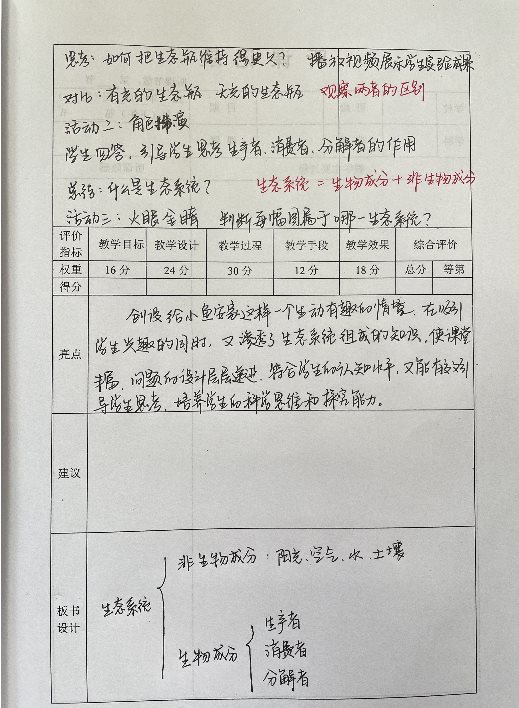 思考：如何把生态瓶维持得更久？ 播放视频展示学生实验成果
对比：有光的生态瓶 无光的生态瓶 观察两者的区别
活动二：角色扮演
学生回答，引导学生思考生产者、消费者、分解者的作用
总结：什么是生态系统？ 生态系统＝生物成分＋非生物成分
活动三：火眼金睛 判断每幅图属于哪一生态系统？
评价指标 教学目标 教学设计 教学过程 教学手段 教学效果 综合评价
权重 16分 24分 30分 12分 18分 总分 等第
得分
亮点
创设给小鱼安家这样一个生动有趣的情境，在吸引
学生兴趣的同时，又渗透了生态系统组成的知识，使课堂
丰富，问题的设计层层递进，符合学生的认知水平，又能有效引
导学生思考，培养学生的科学思维和探究能力。
建议
板书设计
生态系统
非生物成分：阳光、空气、水、土壤
生物成分
生产者
消费者
分解者